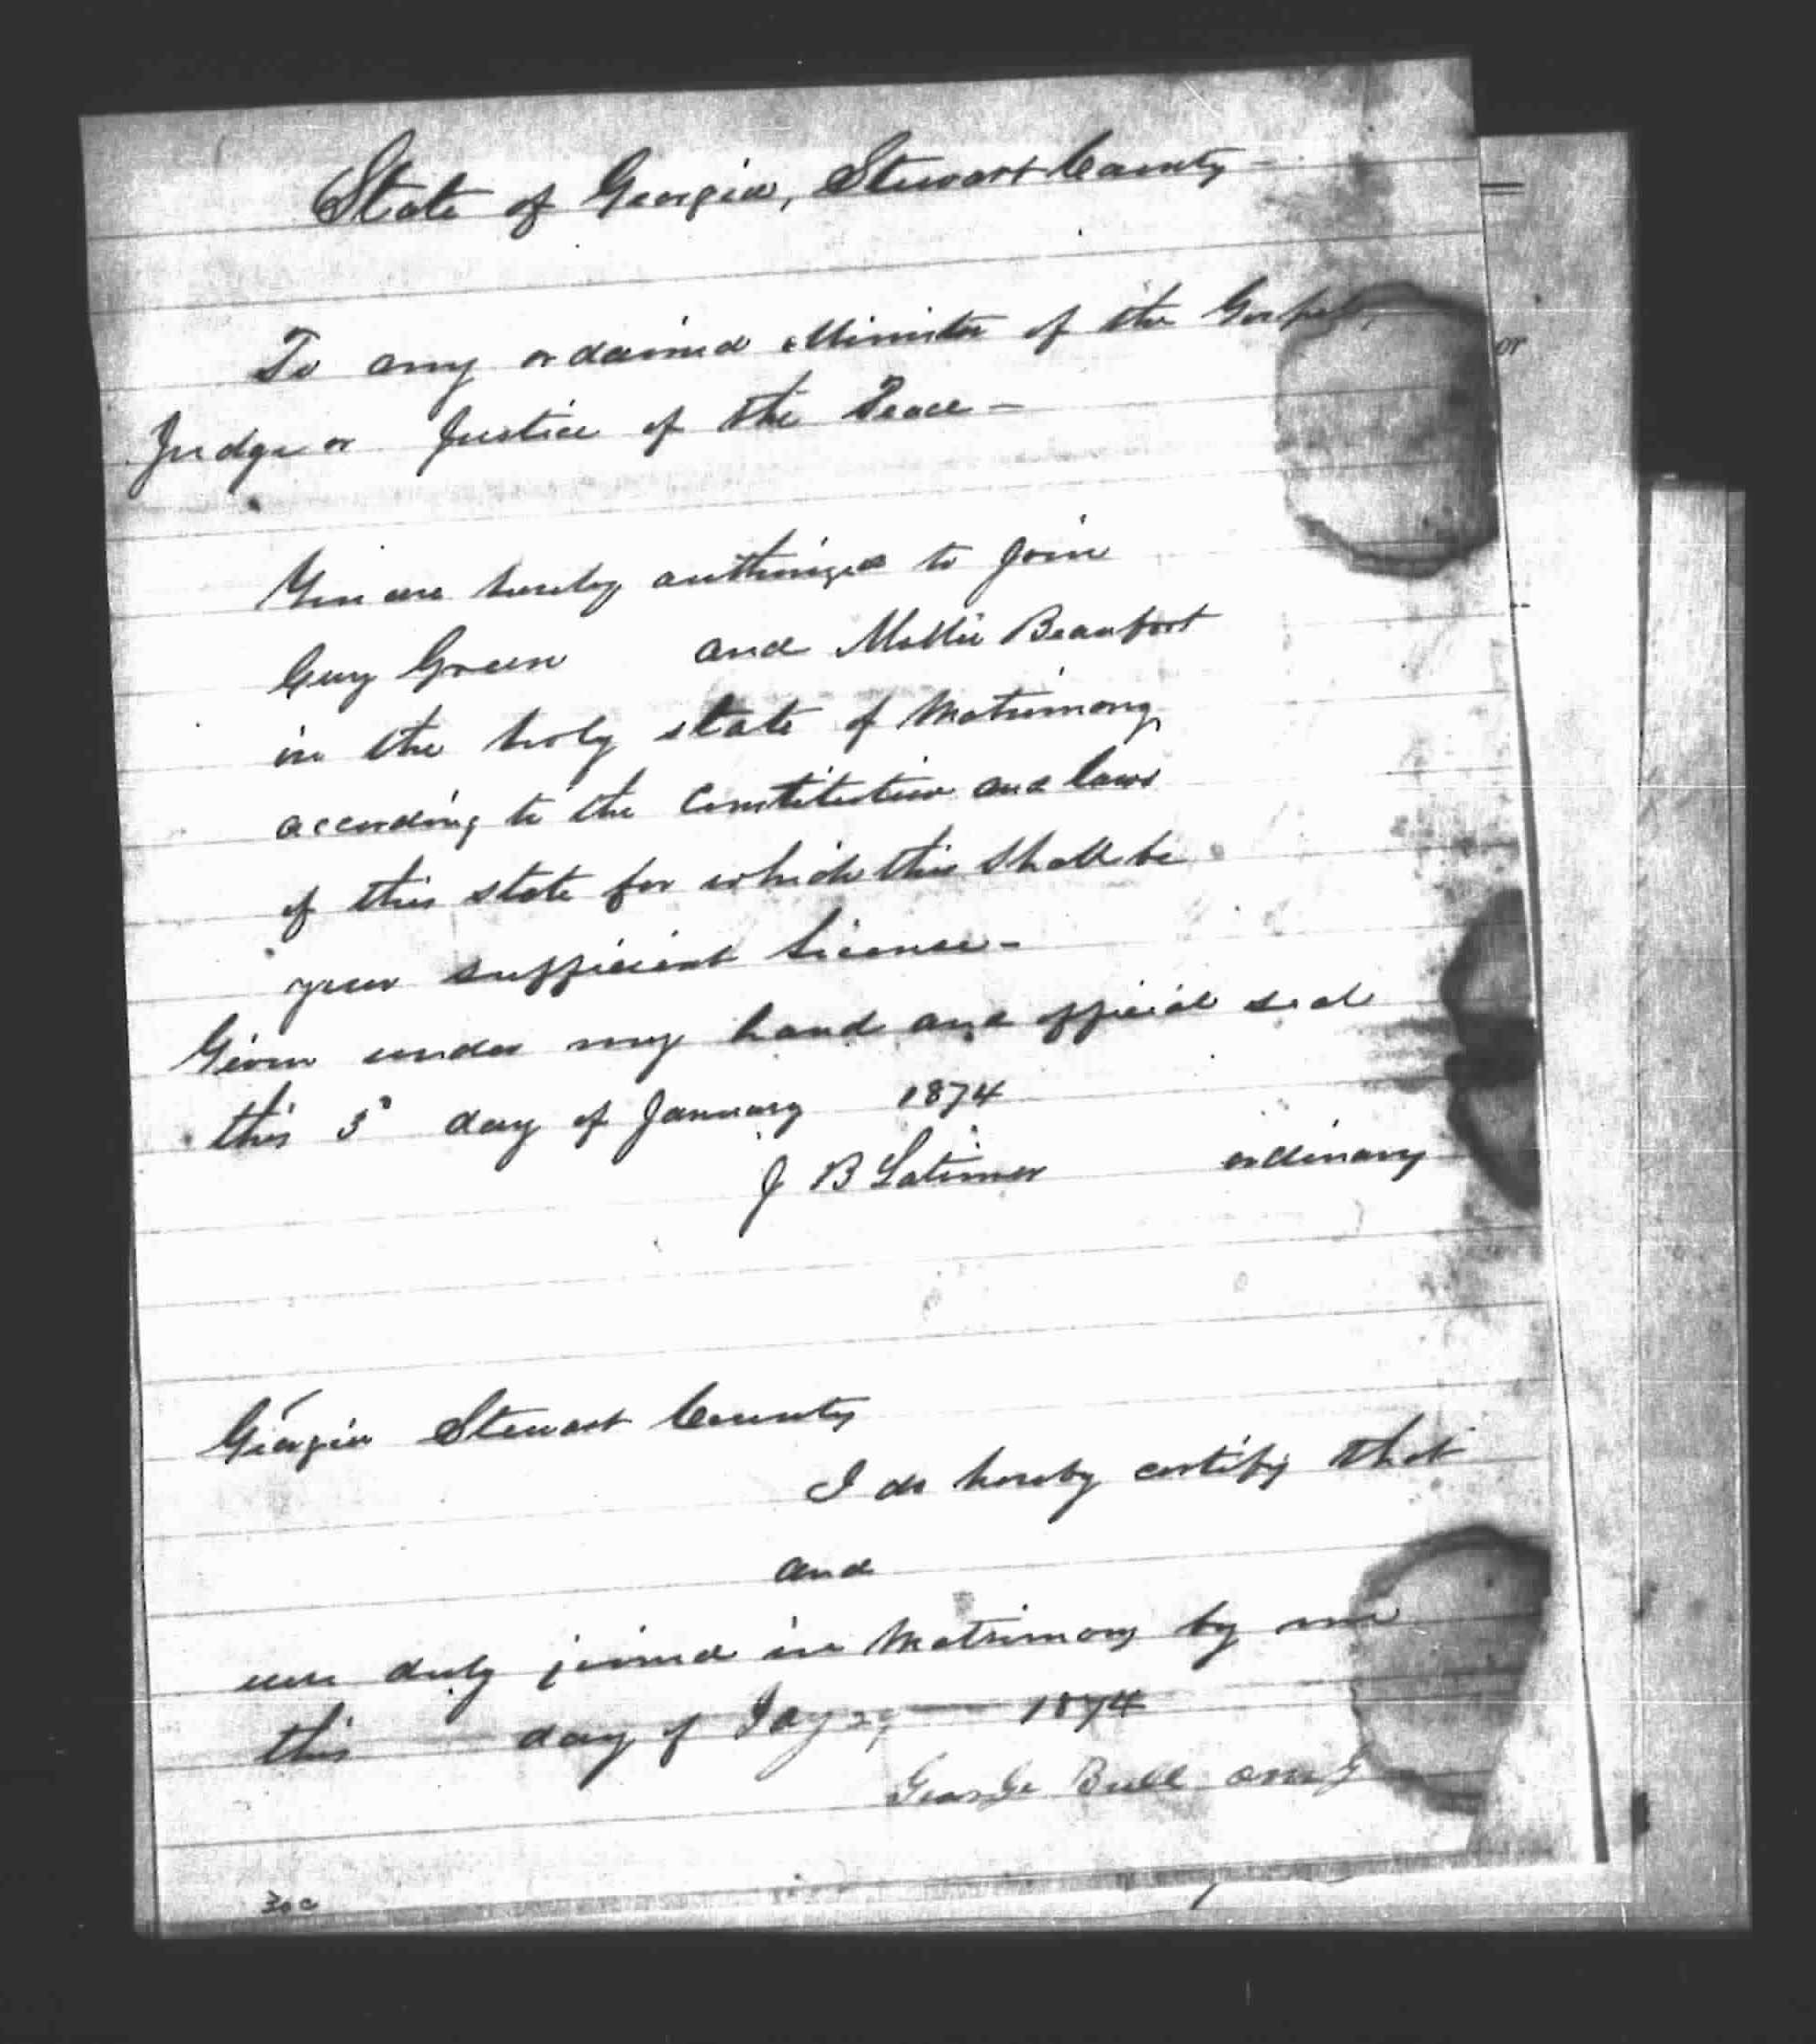 State of Georgia, Stewart County -
To any ordained Minister of the Gospel,
Judge or Justice of the Peace -
You are hereby authorized to join
Guy Green and Mollie Beaufort
in the holy state of Matrimony
according to the Constitution and laws
of this state for which this shall be
your sufficient license -
Given under my hand and official seal
this 5 day of January 1874
J B Latimer ordinary
Georgia Stewart County
I do hereby certify that
and
were duly joined in Matrimony by me
this day of 1874
George Bull
or